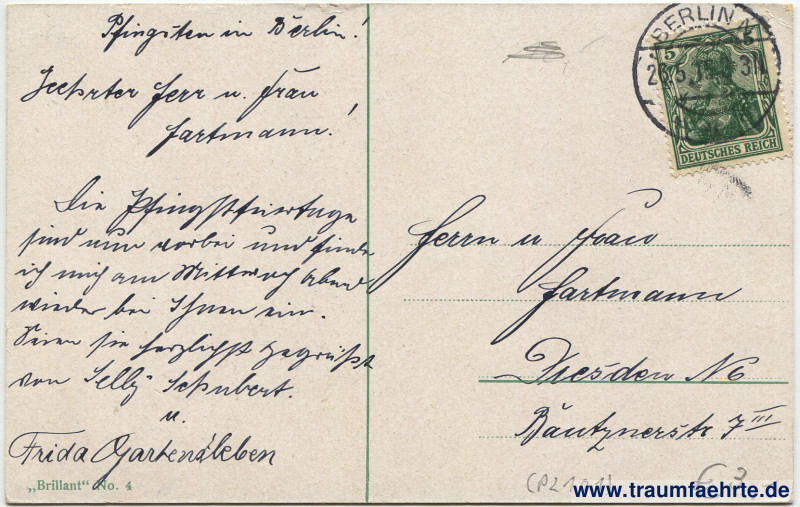 Pfingsten in Berlin!
Geehrter Herr u. Frau
Hartmann!
Die Pfingstfeiertage
sind nun vorbei und finde
ich mich am Mittwoch Abend
wieder bei Ihnen ein.
Seien sie herzlichst gegrüßt
von Selly Schubert.
u.
Frida Gartensleben
„Brillant" No. 4
BERLIN
5
DEUTSCHES REICH
Herrn u Frau
Hartmann
Dresden N6
Bautznerstr 7 III
www.traumfaehrte.de